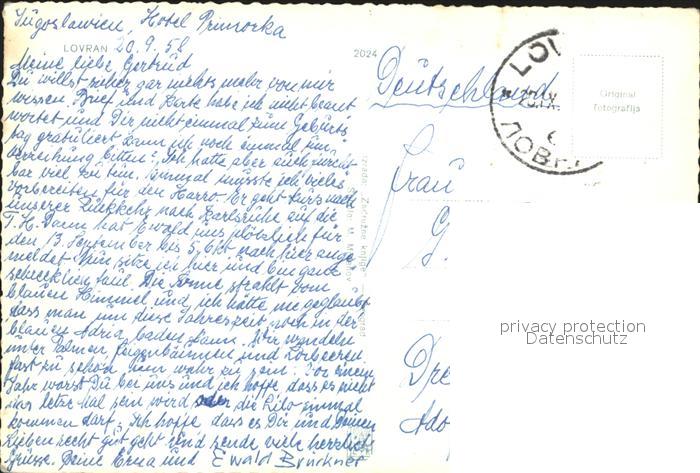 Jugoslawien, Hotel Primorka
LOVRAN 20.9.58
2024
Meine liebe Gertrud
Du willst sicher gar nichts mehr von mir
wissen. Brief und Karte habe ich nicht beant
wortet und Dir nicht einmal zum Geburts
tag gratuliert. Kann ich noch einmal um
Verzeihung bitten? Ich hatte aber auch furcht
bar viel zu tun. Einmal musste ich vieles
vorbereiten für den Harro. Er geht kurz nach
unserer Rückkehr nach Karlsruhe auf die
T.H. Dann hat Ewald uns plötzlich für
den 13. September bis 5. Okt nach hier ange
meldet. Nun sitze ich hier und bin ganz
schrecklich faul. Die Sonne strahlt vom
blauen Himmel und ich hätte nie geglaubt
dass man um diese Jahreszeit noch in der
blauen Adria baden kann. Wir wandeln
unter Palmen, Feigenbäumen und Lorbeeren
fast zu schön um wahr zu sein. Vor einem
Jahr warst Du bei uns und ich hoffe, dass es nicht
das letzte Mal sein wird oder die Lilo einmal
kommen darf. Ich hoffe dass es Dir und Deinen
Lieben recht gut geht und sende viele herzliche
Grüsse. Deine Erna und Ewald Brückner
Deutschland
LOV
20.IX.
ЛОВР
Original
fotografija
Frau
G.
Dre
Ado
privacy protection
Datenschutz